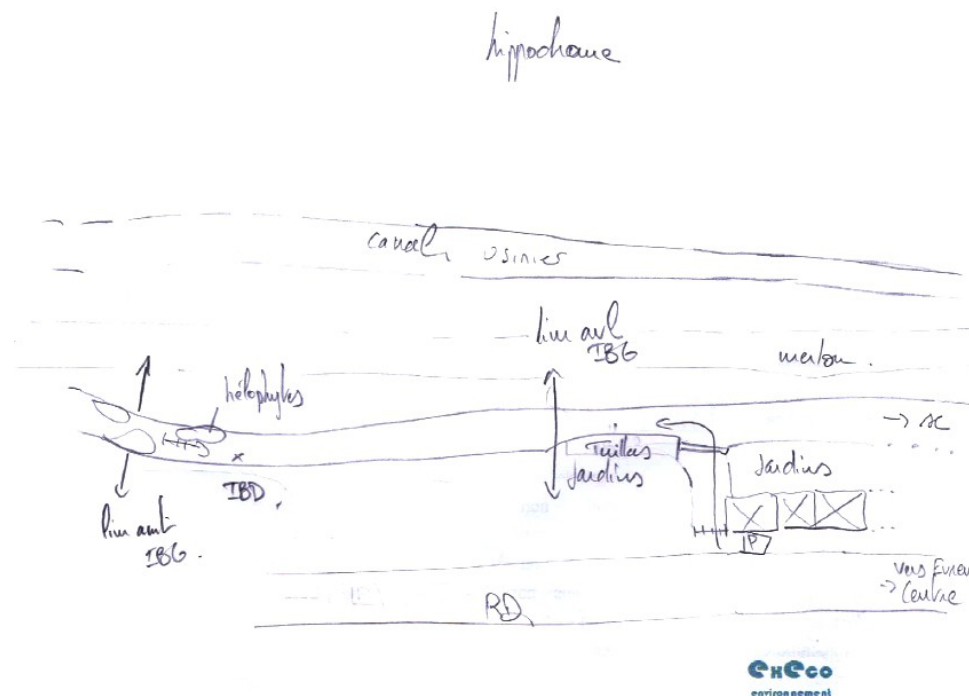 hippodrome
canal usinier
lim avl
IBG
merlon.
hélophytes
→ AC
Jardins
Jardins
IBD.
lim amt
IBG.
P
vers Evreu
→ Centre
RD
execo
environnement